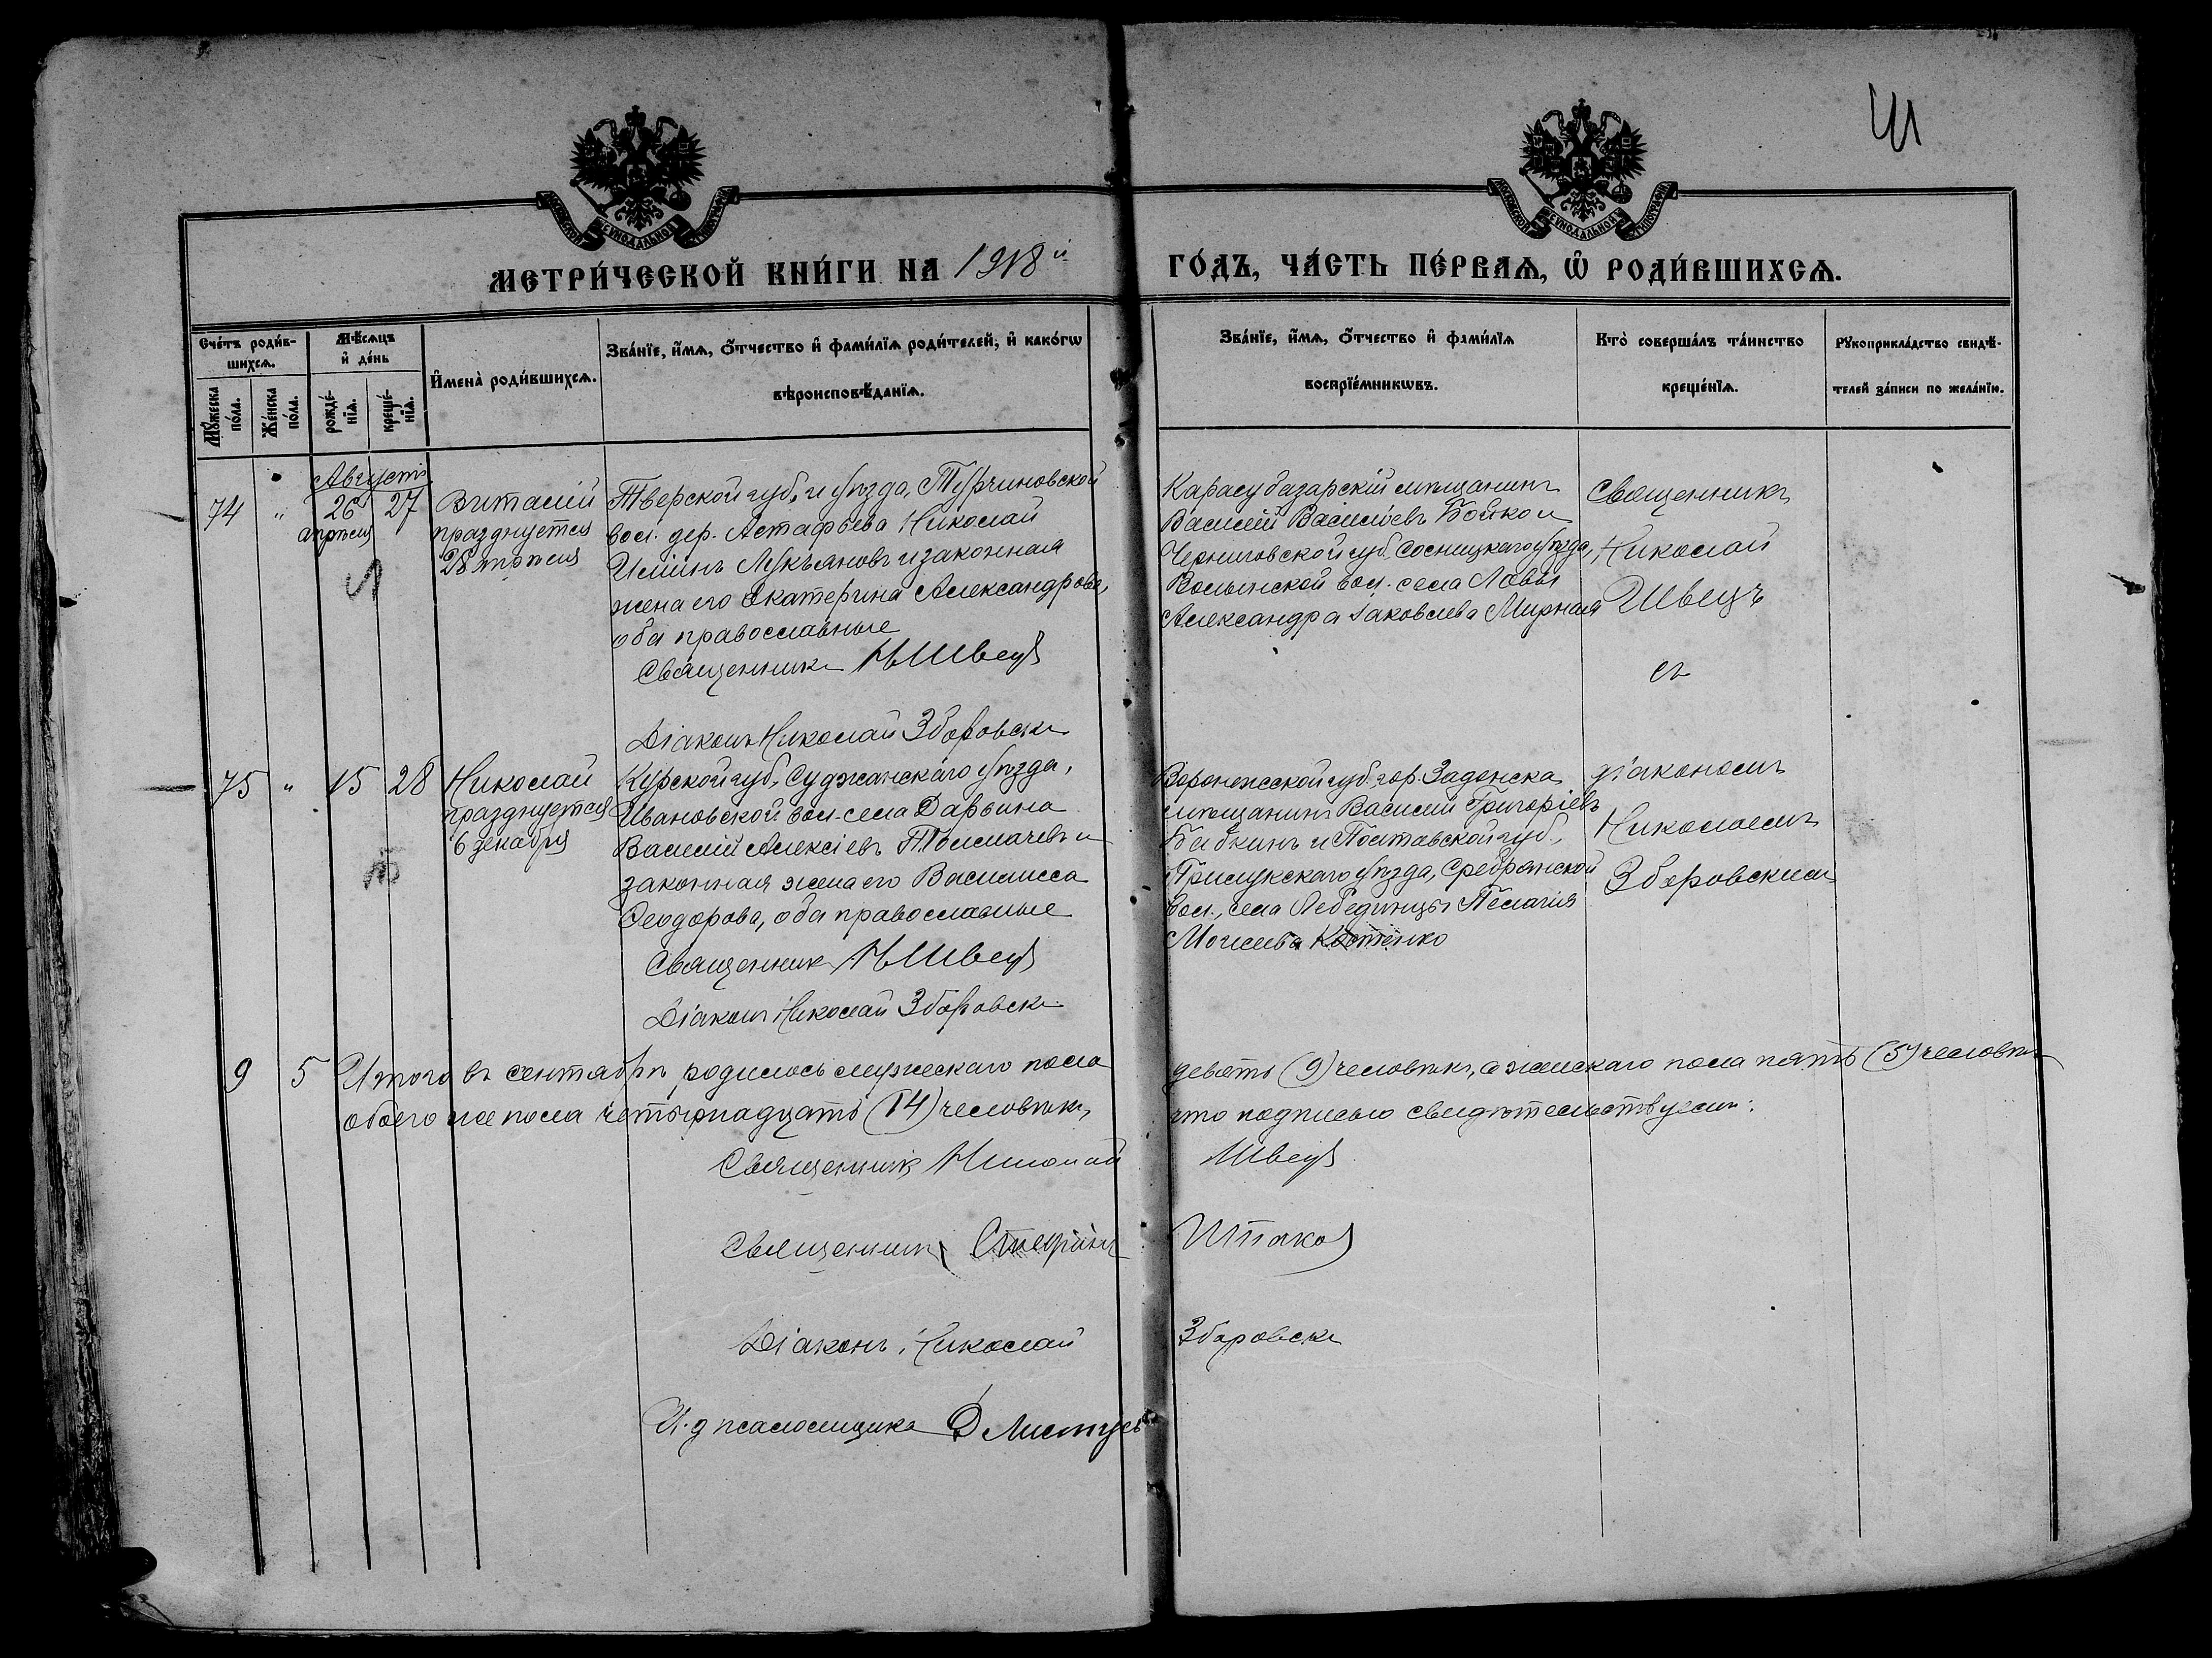 41
МОСКОВСКОЙ СѴНОДАЛЬНОЙ ТИПОГРАФІИ
МОСКОВСКОЙ СѴНОДАЛЬНОЙ ТИПОГРАФІИ
МЕТРИ́ЧЕСКОЙ КНИ́ГИ НА 1918й ГО́ДЪ, ЧА́СТЬ ПЕ́РВАѦ, Ѡ҆ РОДИ́ВШИХСѦ.
Сче́тъ роди́в-
шихсѧ.
Мꙋ́жеска по́ла.
Же́нска по́ла.
Мѣ́сѧцъ
и҆ де́нь
рожде́-
нїѧ.
креще́-
нїѧ.
И҆мена̀ роди́вшихсѧ.
Зва́нїе, и҆́мѧ, ѻ҆́тчество и҆ фами́лїѧ роди́телей, и҆ како́гѡ
вѣроисповѣ́данїѧ.
Зва́нїе, и҆́мѧ, ѻ҆́тчество и҆ фами́лїѧ
воспрїе́мникѡвъ.
Кто̀ соверша́лъ та́инство
креще́нїѧ.
Рꙋкоприкла́дство свидѣ́-
телей за́писи по жела́нїю.
Августъ
74 " 26 27
апрѣля
Виталій
празднуется
28 апрѣля
Тверской губ. и уѣзда, Турчиновской
вол. дер. Астафьева Николай
Ильинъ Лукьяновъ и законная
жена его Екатерина Александрова,
оба православные
Священникъ Н Швецъ
Діаконъ Николай Зборовскі
Карасубазарскій мѣщанинъ
Василій Васильевъ Бойко и
Черниговской губ. Сосницкаго уѣзда,
Волынской вол. села Лавы
Александра Іаковлева Мирная
Священникъ
Николай
Швецъ
съ
75 " 15 28
Николай
празднуется
6 декабря
Курской губ. Суджанскаго уѣзда,
Ивановской вол. села Дарьина
Василій Алексіевъ Толмачевъ и
законная жена его Василисса
Ѳеодорова, оба православные
Священникъ Н Швецъ
Діаконъ Николай Зборовскі
Воронежской губ. гор. Задонска
мѣщанинъ Василій Григоріевъ
Бабкинъ и Полтавской губ.,
Прилукскаго уѣзда, Сребрянской
вол., села Лебединцы Пелагія
Моисеева Костенко
діакономъ
Николаемъ
Зборовскимъ
9 5 Итого въ сентябрѣ родилось мужескаго пола девять (9) человѣкъ, а женскаго пола пять (5) человѣкъ
обоего же пола четырнадцать (14) человѣкъ, что подписью свидѣтельствуемъ:
Священникъ Николай Швецъ
Священникъ Стефанъ Шпаков
Діаконъ Николай Зборовскі
И. д псаломщика Д